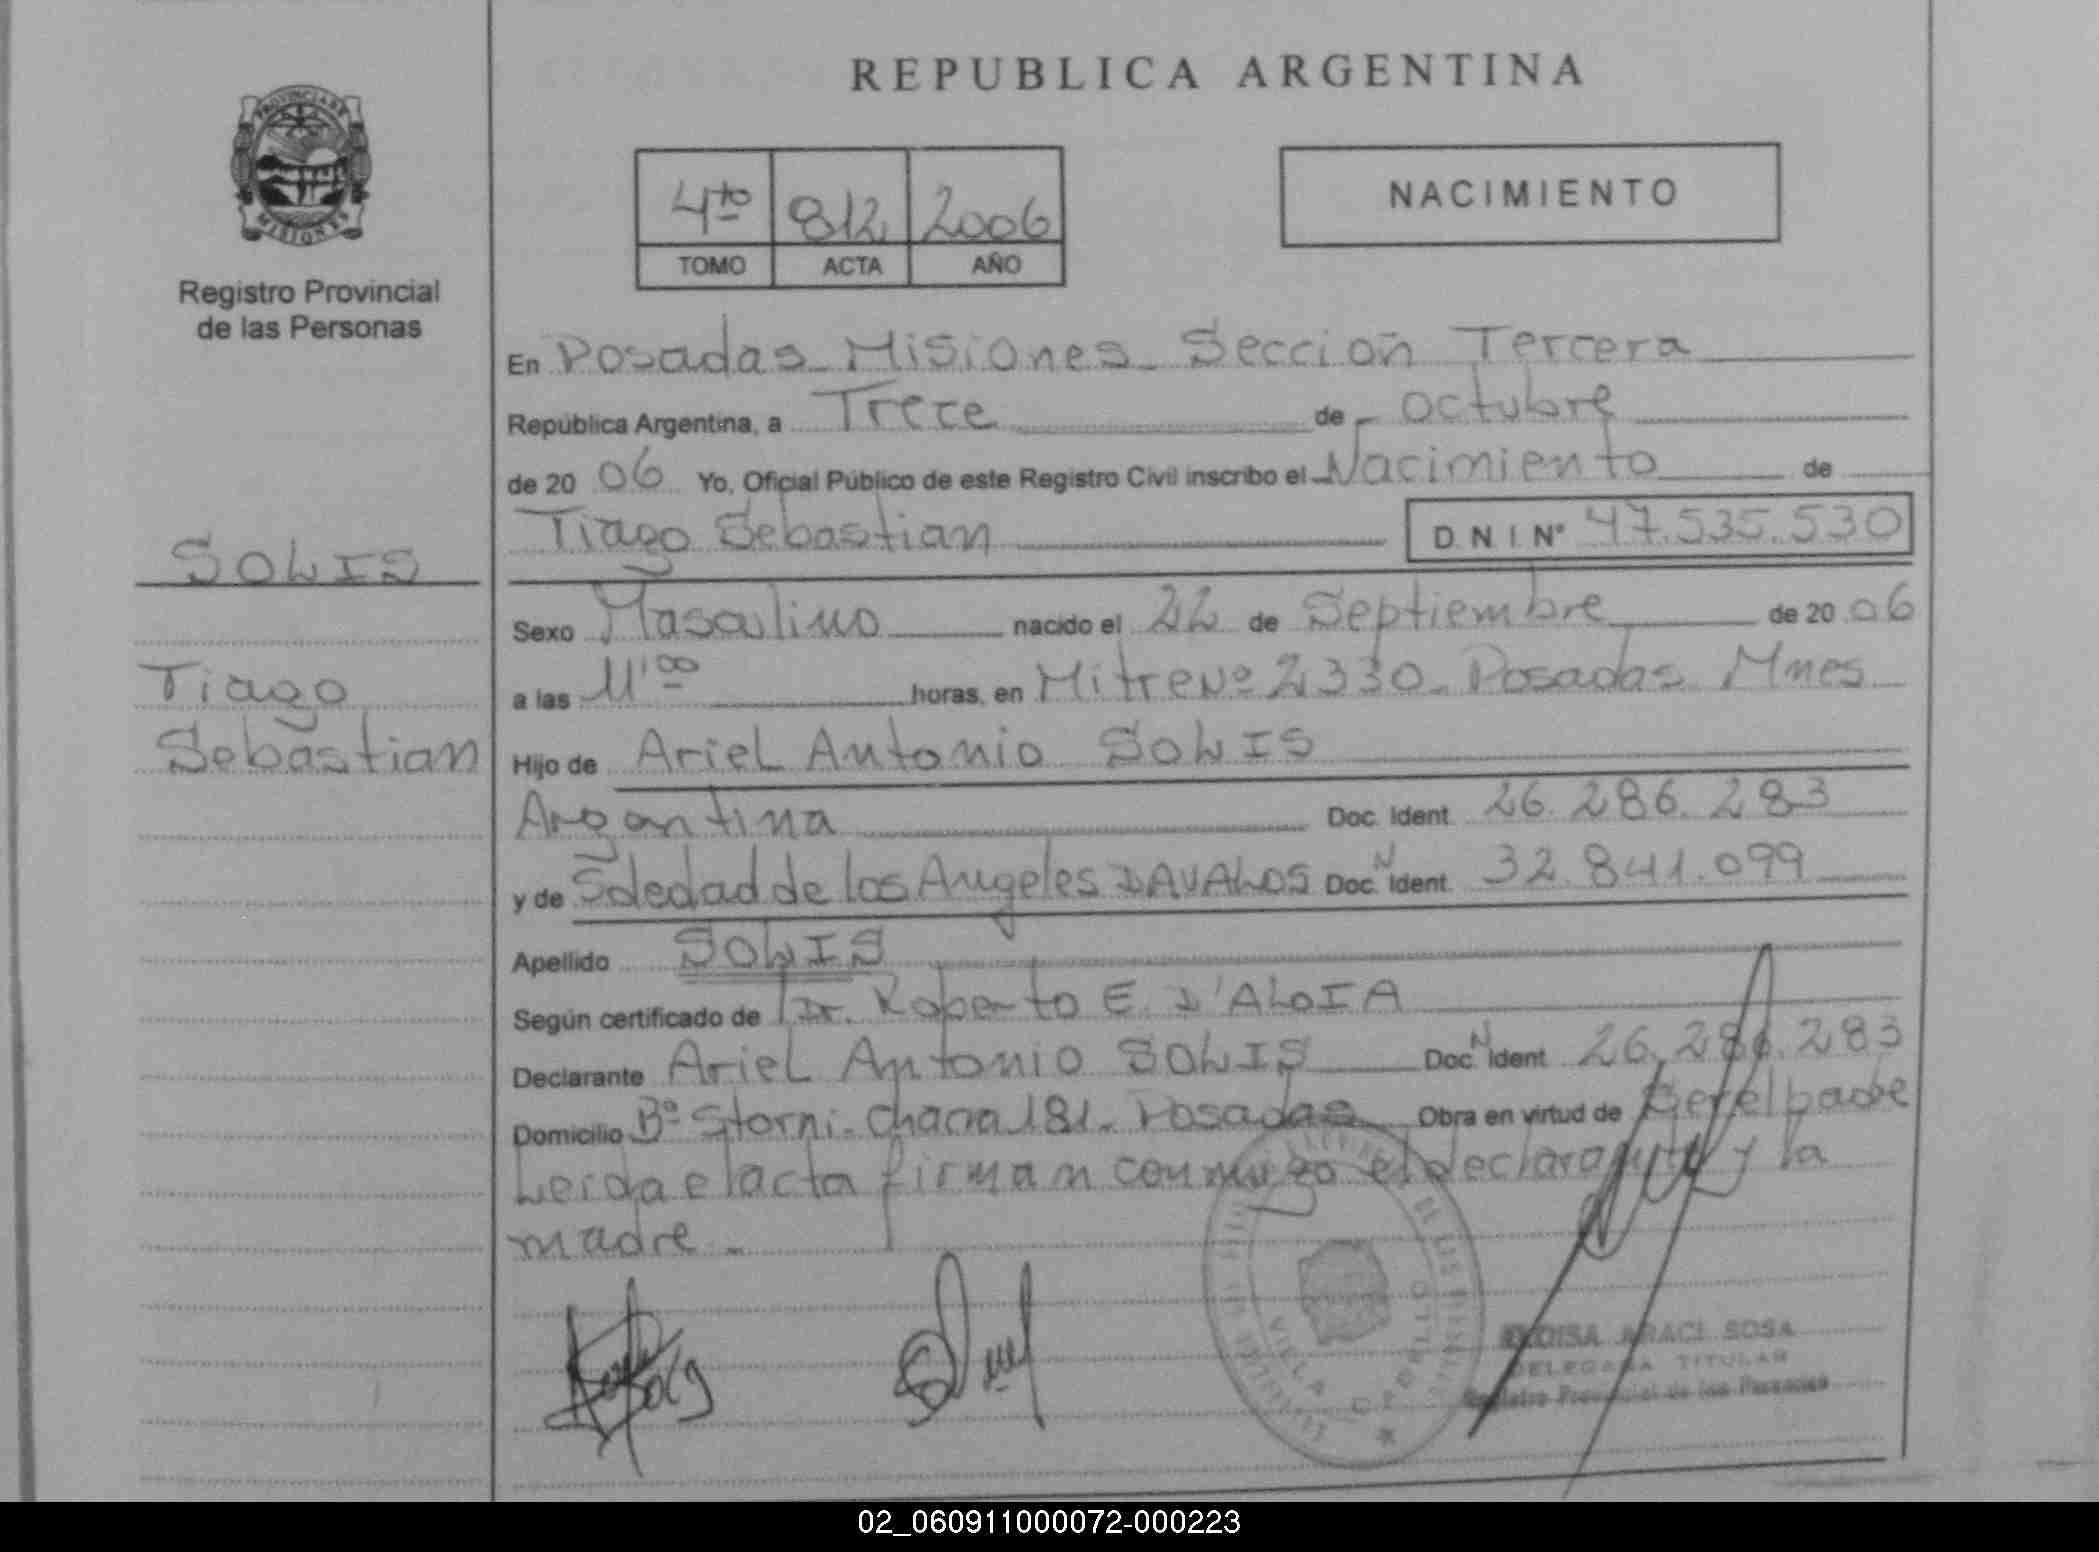 REPUBLICA ARGENTINA
PROVINCIA DE
MISIONES
Registro Provincial
de las Personas
4to 812 2006
TOMO ACTA AÑO
NACIMIENTO
En Posadas Misiones Sección Tercera
República Argentina, a Trece de octubre
de 2006 Yo, Oficial Público de este Registro Civil inscribo el Nacimiento de
Tiago Sebastian D.N.I. N° 47.535.530
SOLIS
Tiago
Sebastian
Sexo Masculino nacido el 22 de Septiembre de 2006
a las 11'00 horas, en Mitre Nº 2330 - Posadas Mnes
Hijo de Ariel Antonio SOLIS
Argentina Doc. Ident. 26.286.283
y de Soledad de los Angeles DAVALOS Doc. N Ident. 32.841.099
Apellido SOLIS
Según certificado de Dr. Roberto E. D'ALOIA
Declarante Ariel Antonio SOLIS Doc. N Ident 26.286.283
Domicilio Bº Storni - Chacra 181 - Posadas Obra en virtud de Ser el padre
Leida el acta firman conmigo el declarante y la
madre -
ELOISA ARACI SOSA
DELEGADA TITULAR
Registro Provincial de las Personas
VILLA CABELLO
02_060911000072-000223